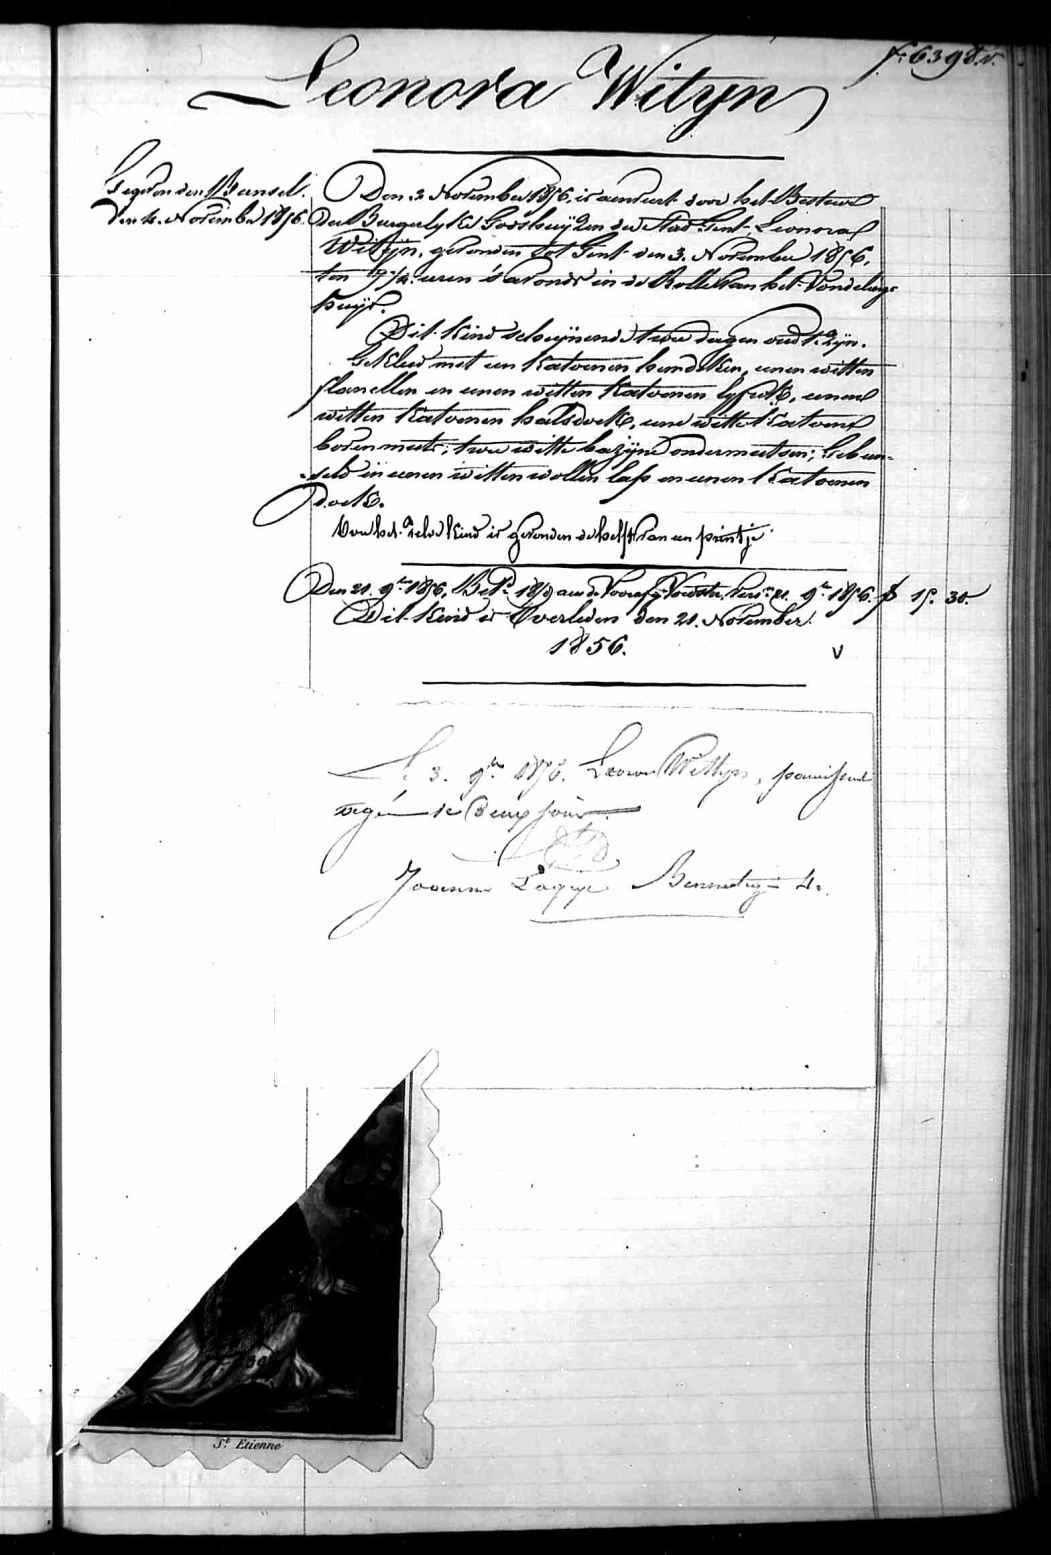 f. 6398.v.
Leonora Wityn
Gegeven den Bussel.
den 4. November 1856.
Den 3 November 1856. is aenveert door het Bestuer
der Burgelyke Godshuyzen der Stad Gent Leonora
Wityn, gevonden tot Gent den 3. November 1856,
ten 7 1/2 uren 's avonds in de Rolle van het Vondeling-
huys.
Dit Kind schynende twee dagen oud te zyn.
Gekleed met een katoenen hemdeken, eenen witten
flanellen en eenen witten katoenen lyfrok, eenen
witten katoenen halsdoek, eene witte katoene
bovenmuts; twee witte bazyne ondermutsen; Gebun-
seld in eenen witten wollen lap en eenen katoenen
doek.
Van het zelve kind is gevonden de helft van een printje
Den 21. 9bre 1856, 9bre 1856. f 15. 30.
Dit Kind is Overleden den 21. November
1856.
v
Le 3. 9bre 1856. Leonore Wittyn, paraissant
agée de deux jours.
Joanna
St. Etienne